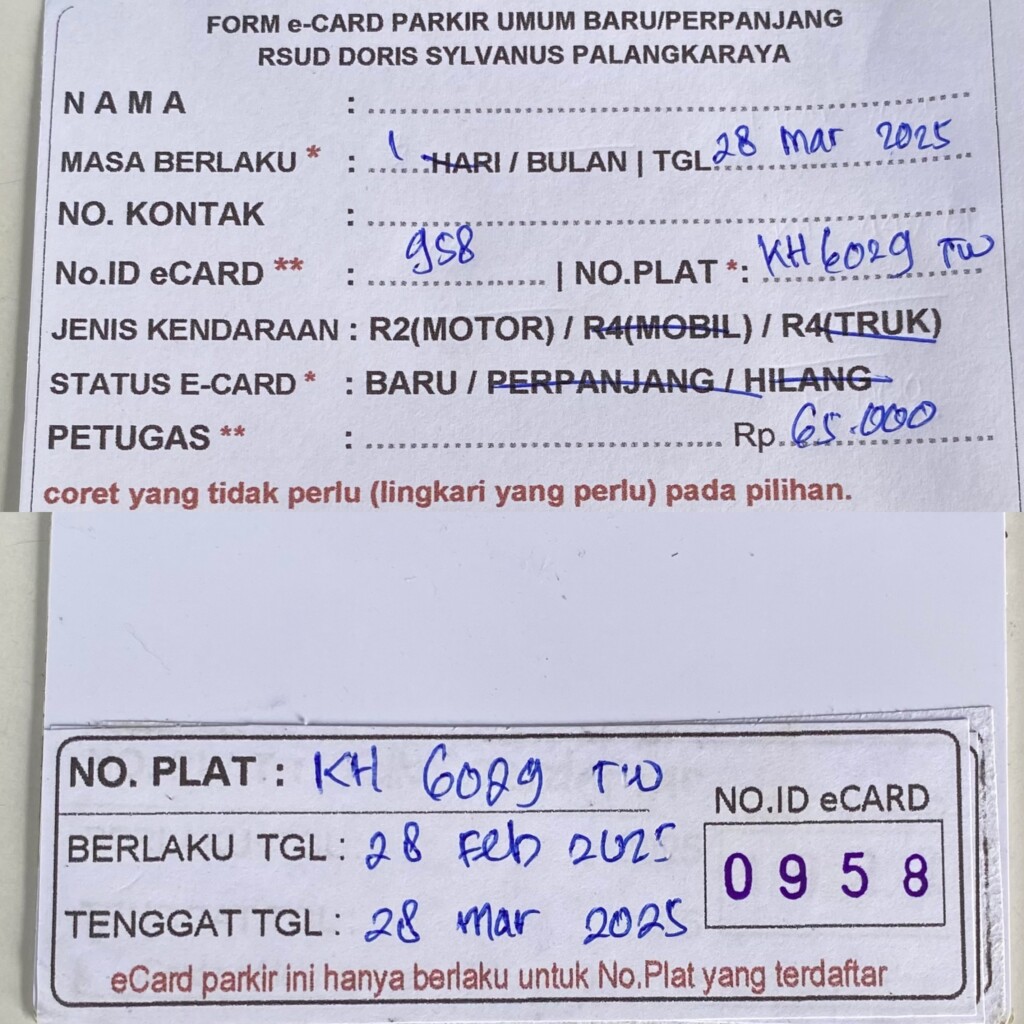 FORM e-CARD PARKIR UMUM BARU/PERPANJANG
RSUD DORIS SYLVANUS PALANGKARAYA
N A M A :
MASA BERLAKU * : 1 HARI / BULAN | TGL 28 Mar 2025
NO. KONTAK :
No.ID eCARD ** : 958 | NO.PLAT *: KH 6029 TW
JENIS KENDARAAN : R2(MOTOR) / R4(MOBIL) / R4(TRUK)
STATUS E-CARD * : BARU / PERPANJANG / HILANG
PETUGAS ** : Rp. 65.000
coret yang tidak perlu (lingkari yang perlu) pada pilihan.
NO. PLAT : KH 6029 TW
NO.ID eCARD
BERLAKU TGL : 28 Feb 2025
0958
TENGGAT TGL : 28 Mar 2025
eCard parkir ini hanya berlaku untuk No.Plat yang terdaftar